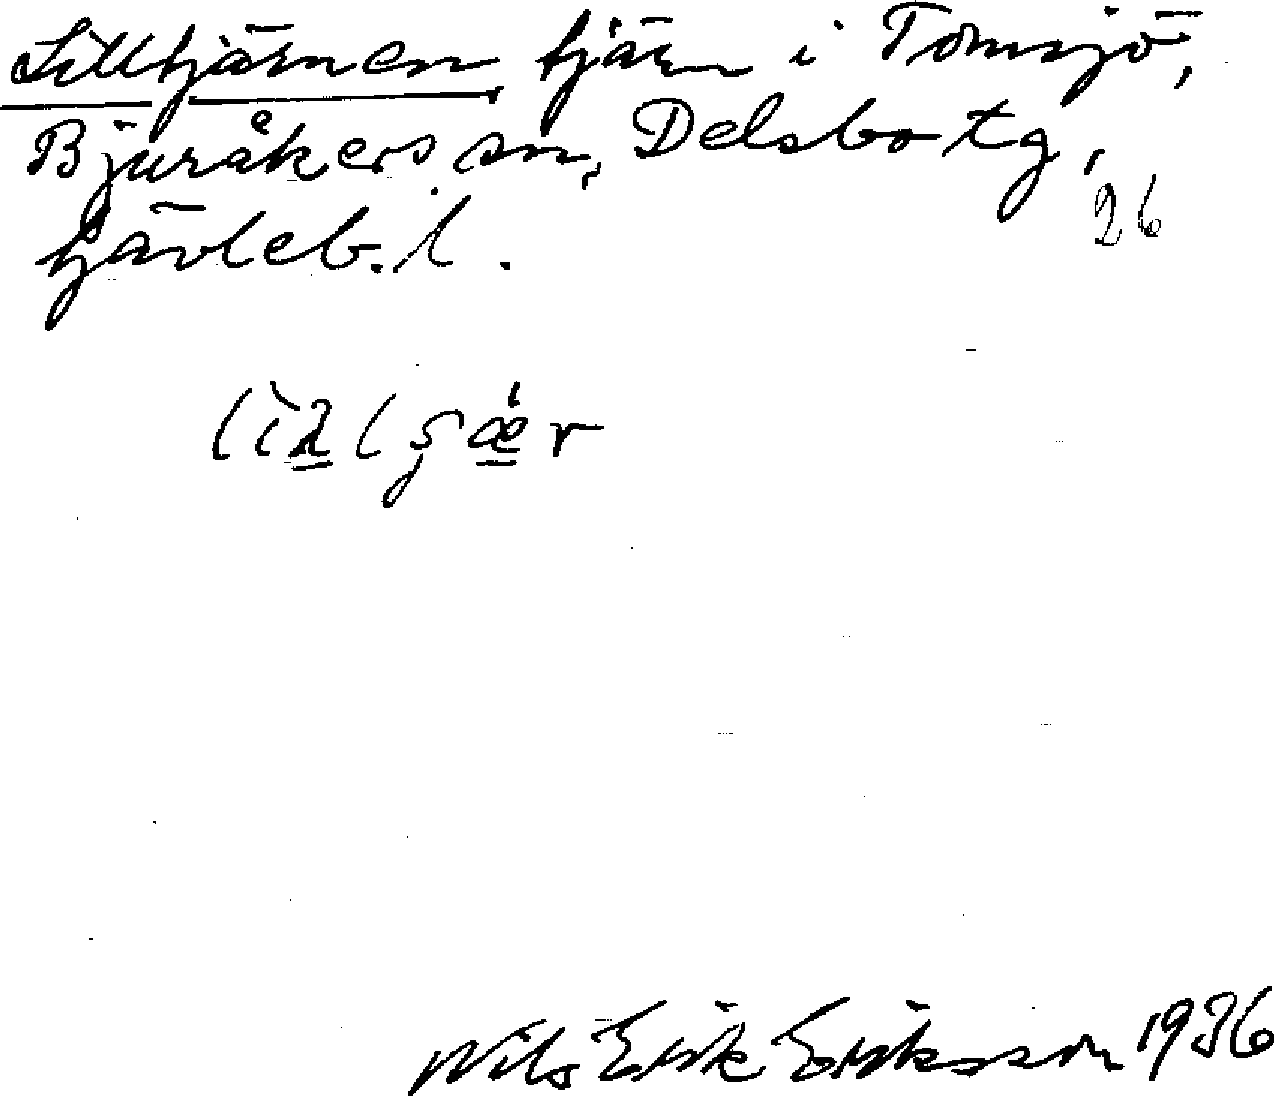 Lilltjärnen tjärn i Tomsjö,
Bjuråkers sn, Delsbo tg,
Gävleb. l.
26
Nils Erik Eriksson 1936